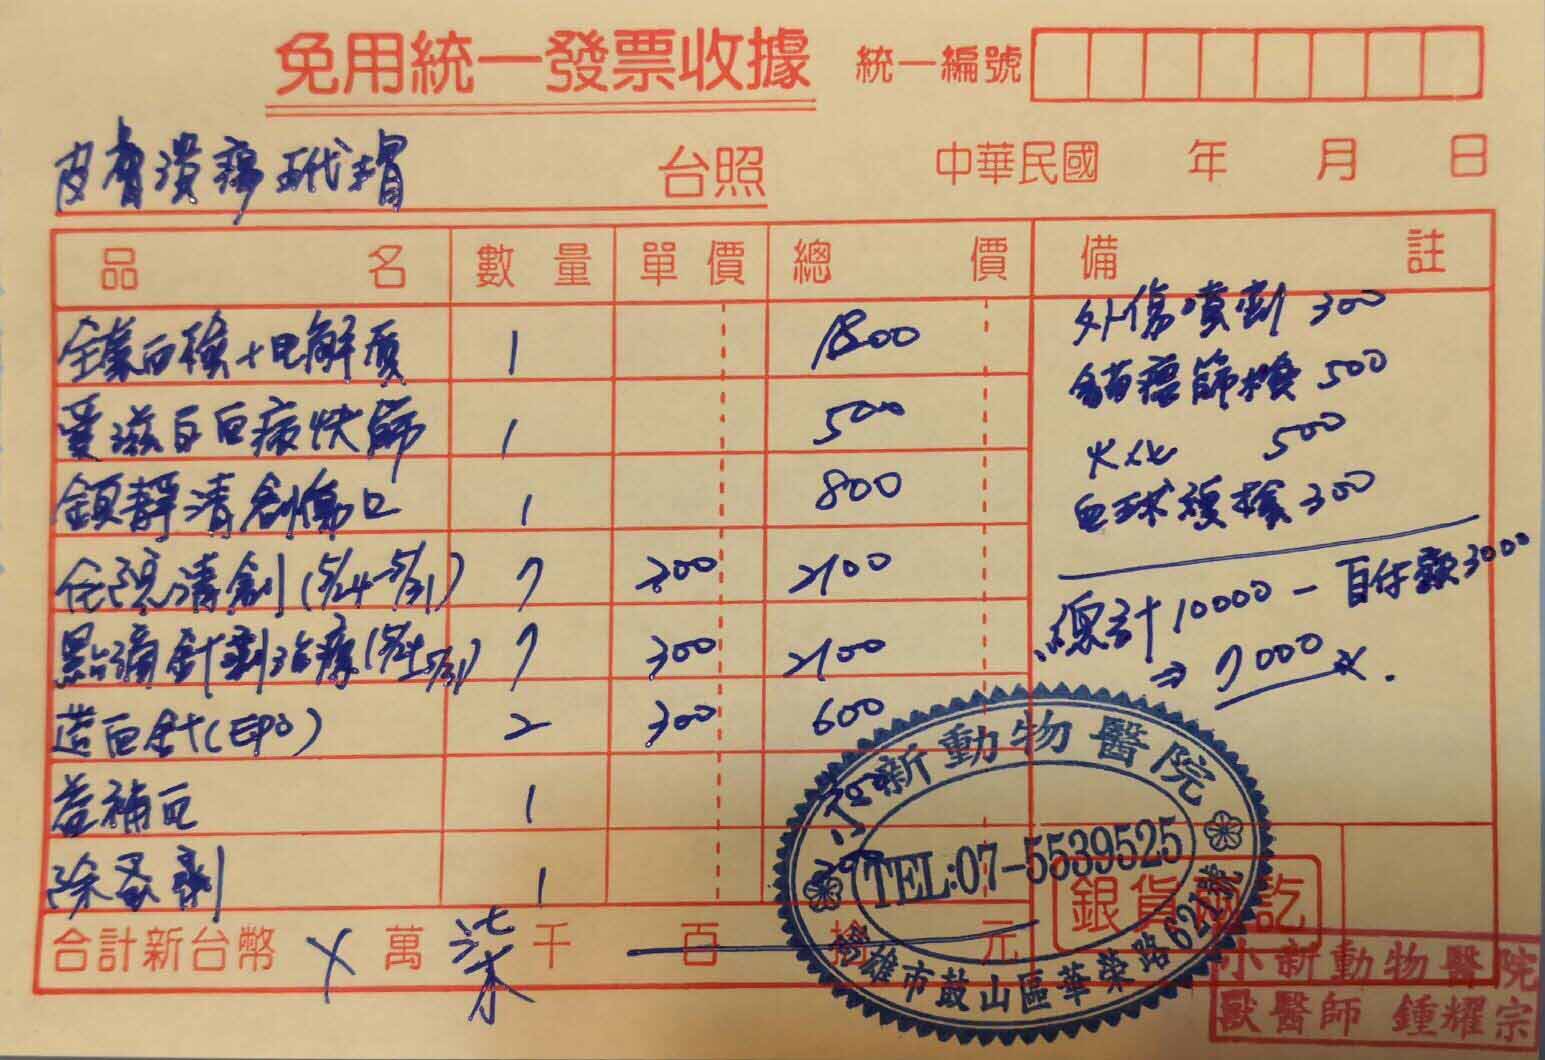 免用統一發票收據
統一編號
皮膚潰瘍玳瑁 台照
中華民國 年 月 日
品名 數量 單價 總價 備註
全套血檢+電解質 1 1800
愛滋白血病快篩 1 500
鎮靜清創傷口 1 800
住院清創(5/24-5/31) 7 300 2100
點滴針劑治療(5/24-5/31) 7 300 2100
造血針(EPO) 2 300 600
益補血 1
除蚤劑 1
外傷噴劑 300
貓瘟篩檢 500
火化 500
血球複檢 300
總計10000-自付款3000
⇒ 7000
合計新台幣 萬 柒 千 百 拾 元
小新動物醫院
TEL:07-5539525
高雄市鼓山區華榮路621號
銀貨兩訖
小新動物醫院
獸醫師 鍾耀宗